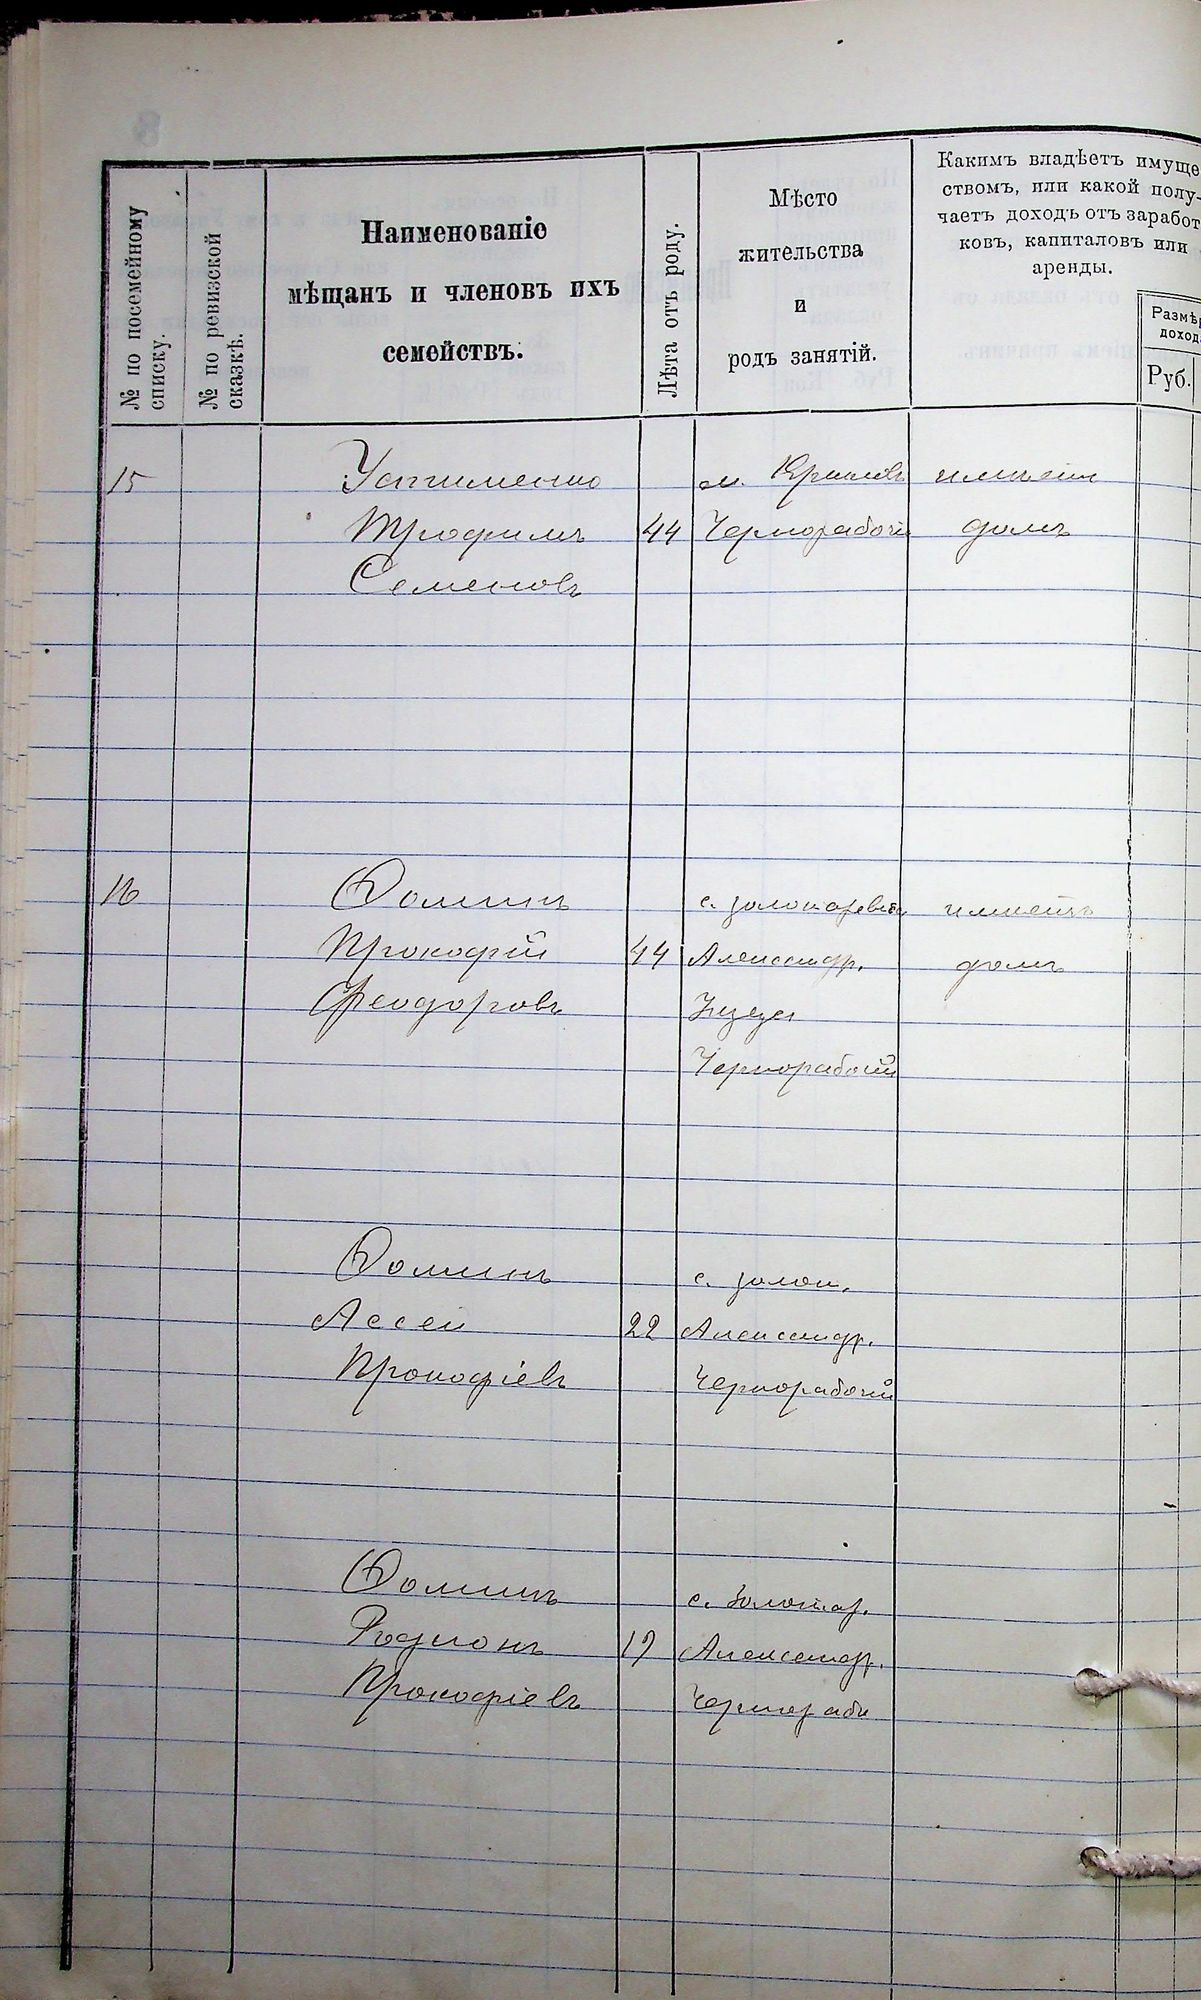 № по посемейному списку.
№ по ревизской сказкѣ.
Наименованіе
мѣщанъ и членовъ ихъ
семействъ.
Лѣта отъ роду.
Мѣсто
жительства
и
родъ занятій.
Какимъ владѣетъ имуще
ствомъ, или какой полу-
чаетъ доходъ отъ заработ
ковъ, капиталовъ или
аренды.
Размѣр
доход
Руб.
15 Устименко м. Крыловъ имѣетъ
Трофимъ 44 Чернорабочій домъ
Семеновъ
16 Фоминъ с. Золотаревка имѣетъ
Прокофій 44 Александр. домъ
Феодоровъ уѣзда
Чернорабочій
Фоминъ с. Золот.
22 Александр.
Прокофіевъ Чернорабочій
Фоминъ с. Золотар.
Родіонъ 17 Александр.
Прокофіевъ Чернораб